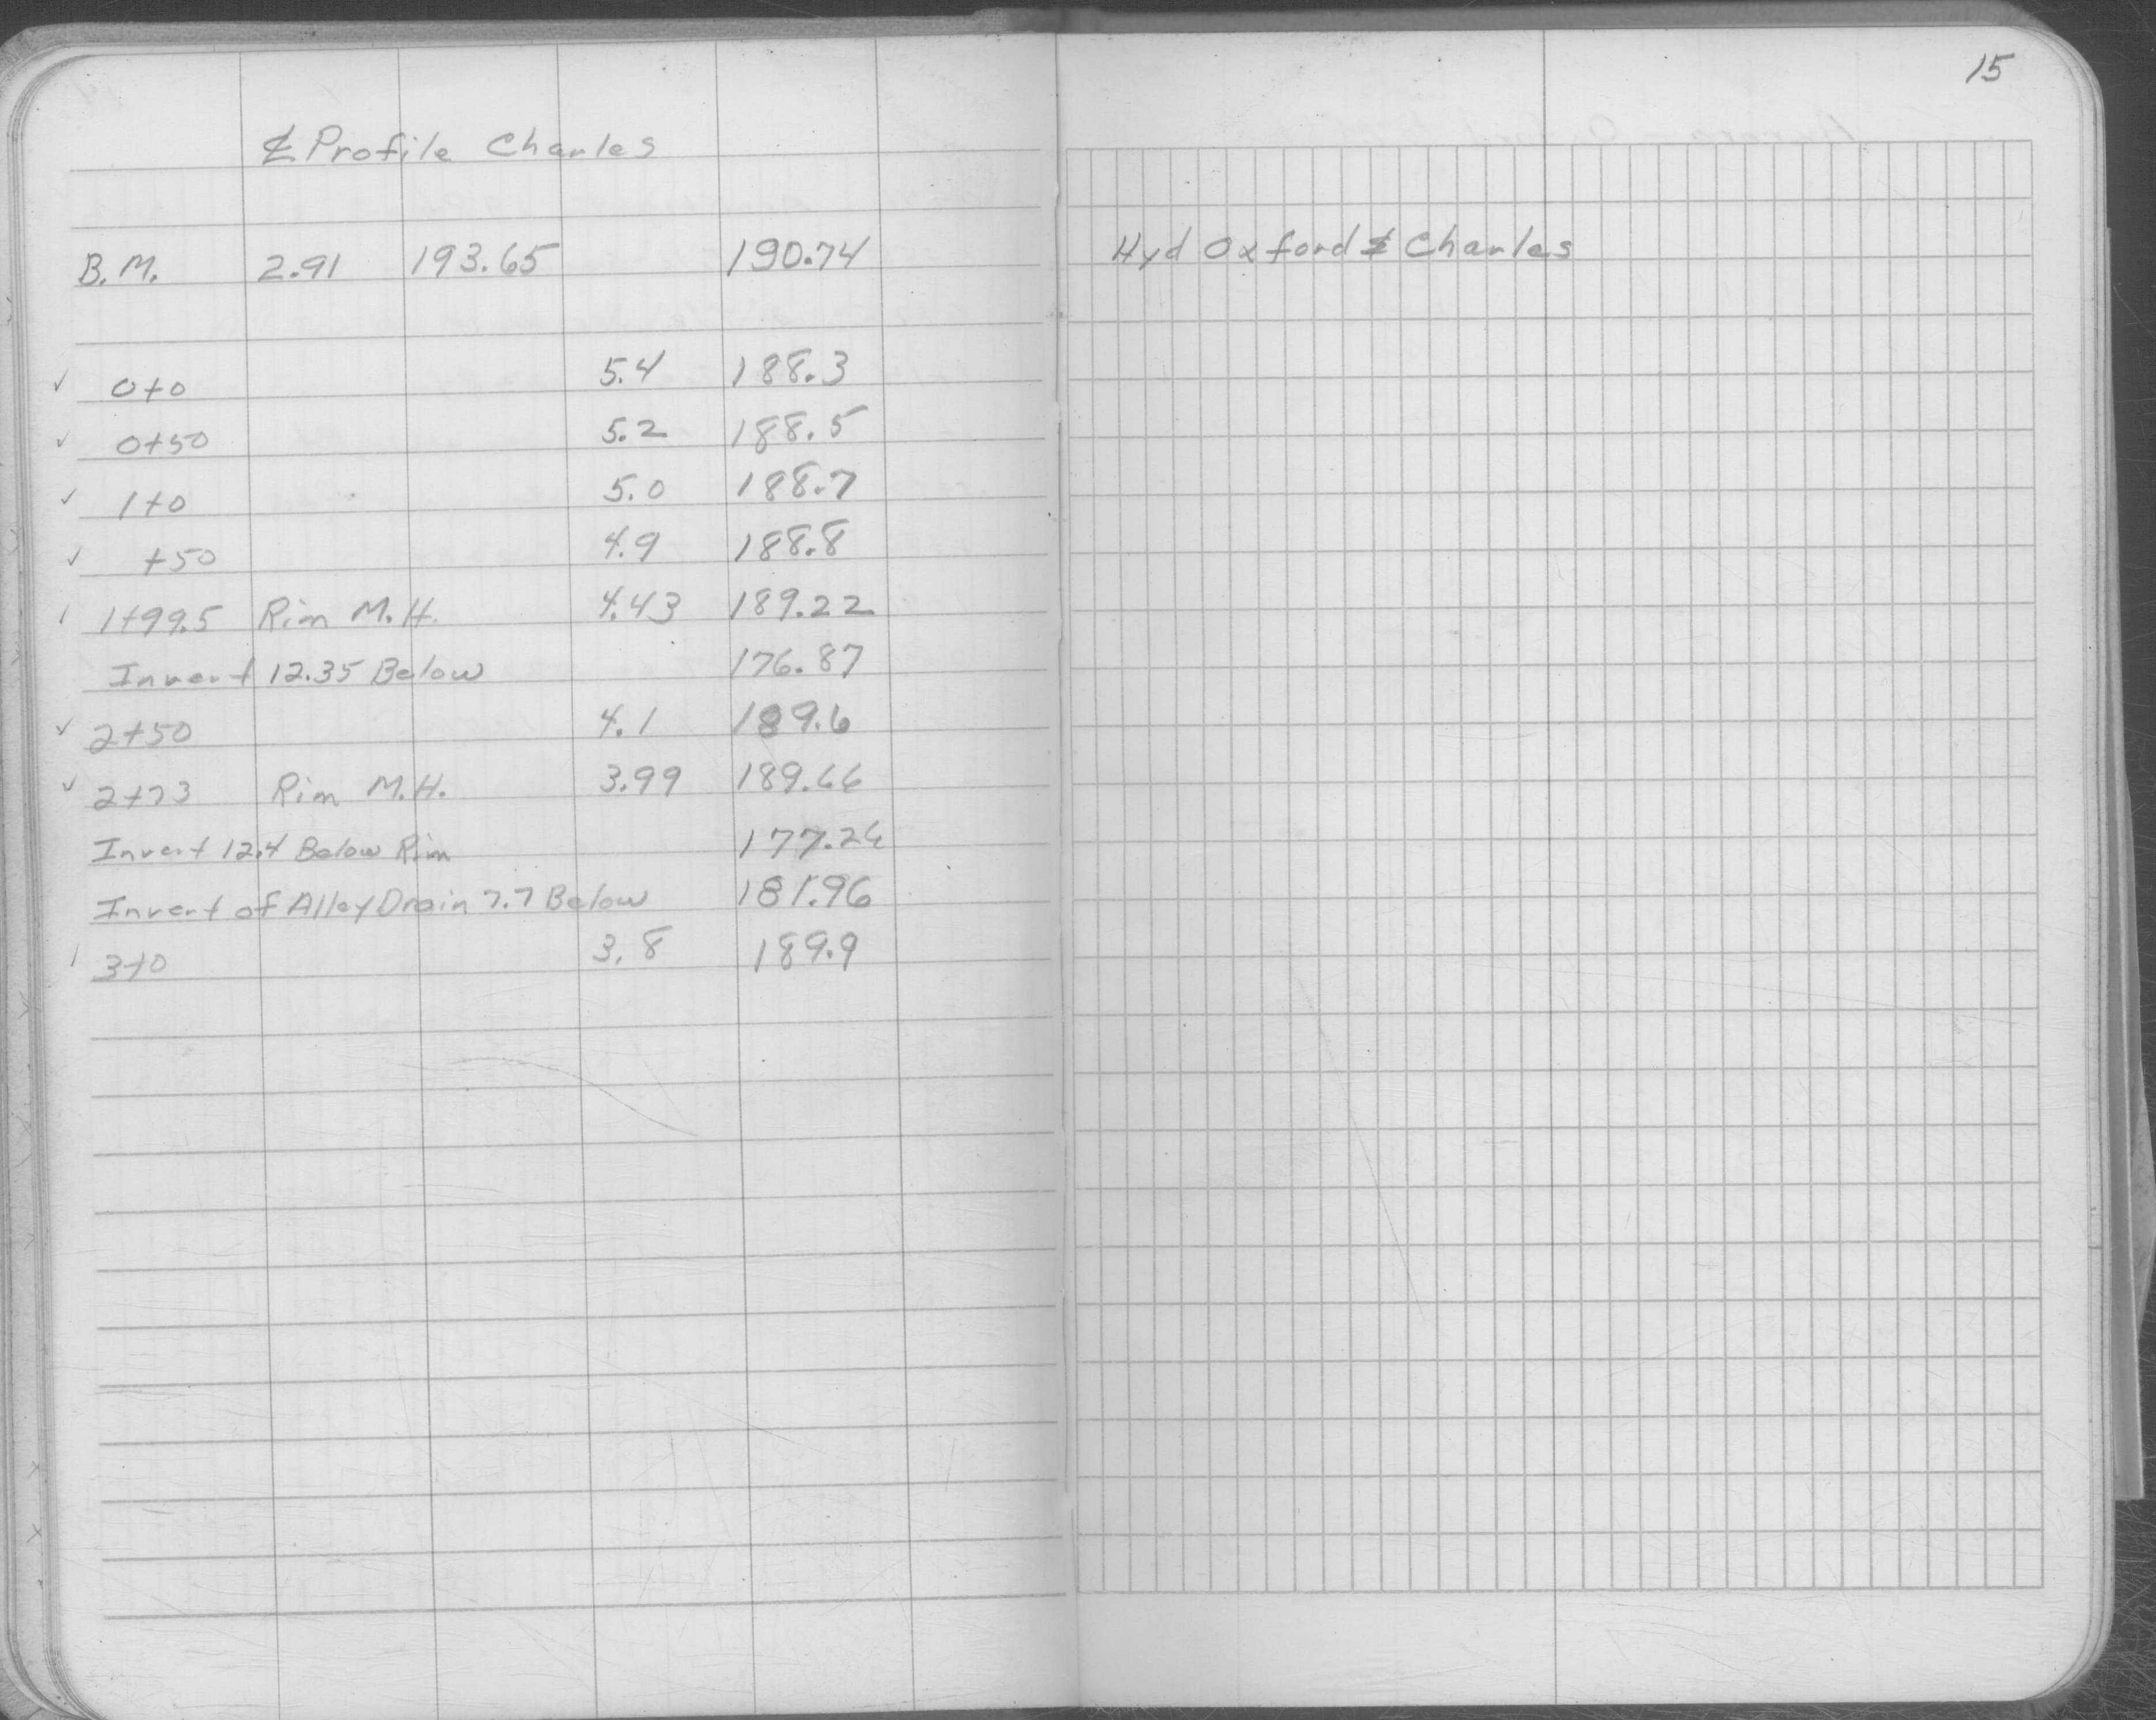 15
⅊ Profile Charles
B.M. 2.91 193.65 190.74 Hyd Oxford & Charles
✓ 0+0 5.4 188.3
✓ 0+50 5.2 188.5
✓ 1+0 5.0 188.7
✓ +50 4.9 188.8
1+99.5 Rim M.H. 4.43 189.22
Invert 12.35 Below 176.87
✓ 2+50 4.1 189.6
✓ 2+73 Rim M.H. 3.99 189.66
Invert 12.4 Below Rim 177.26
Invert of Alley Drain 7.7 Below 181.96
3+0 3.8 189.9